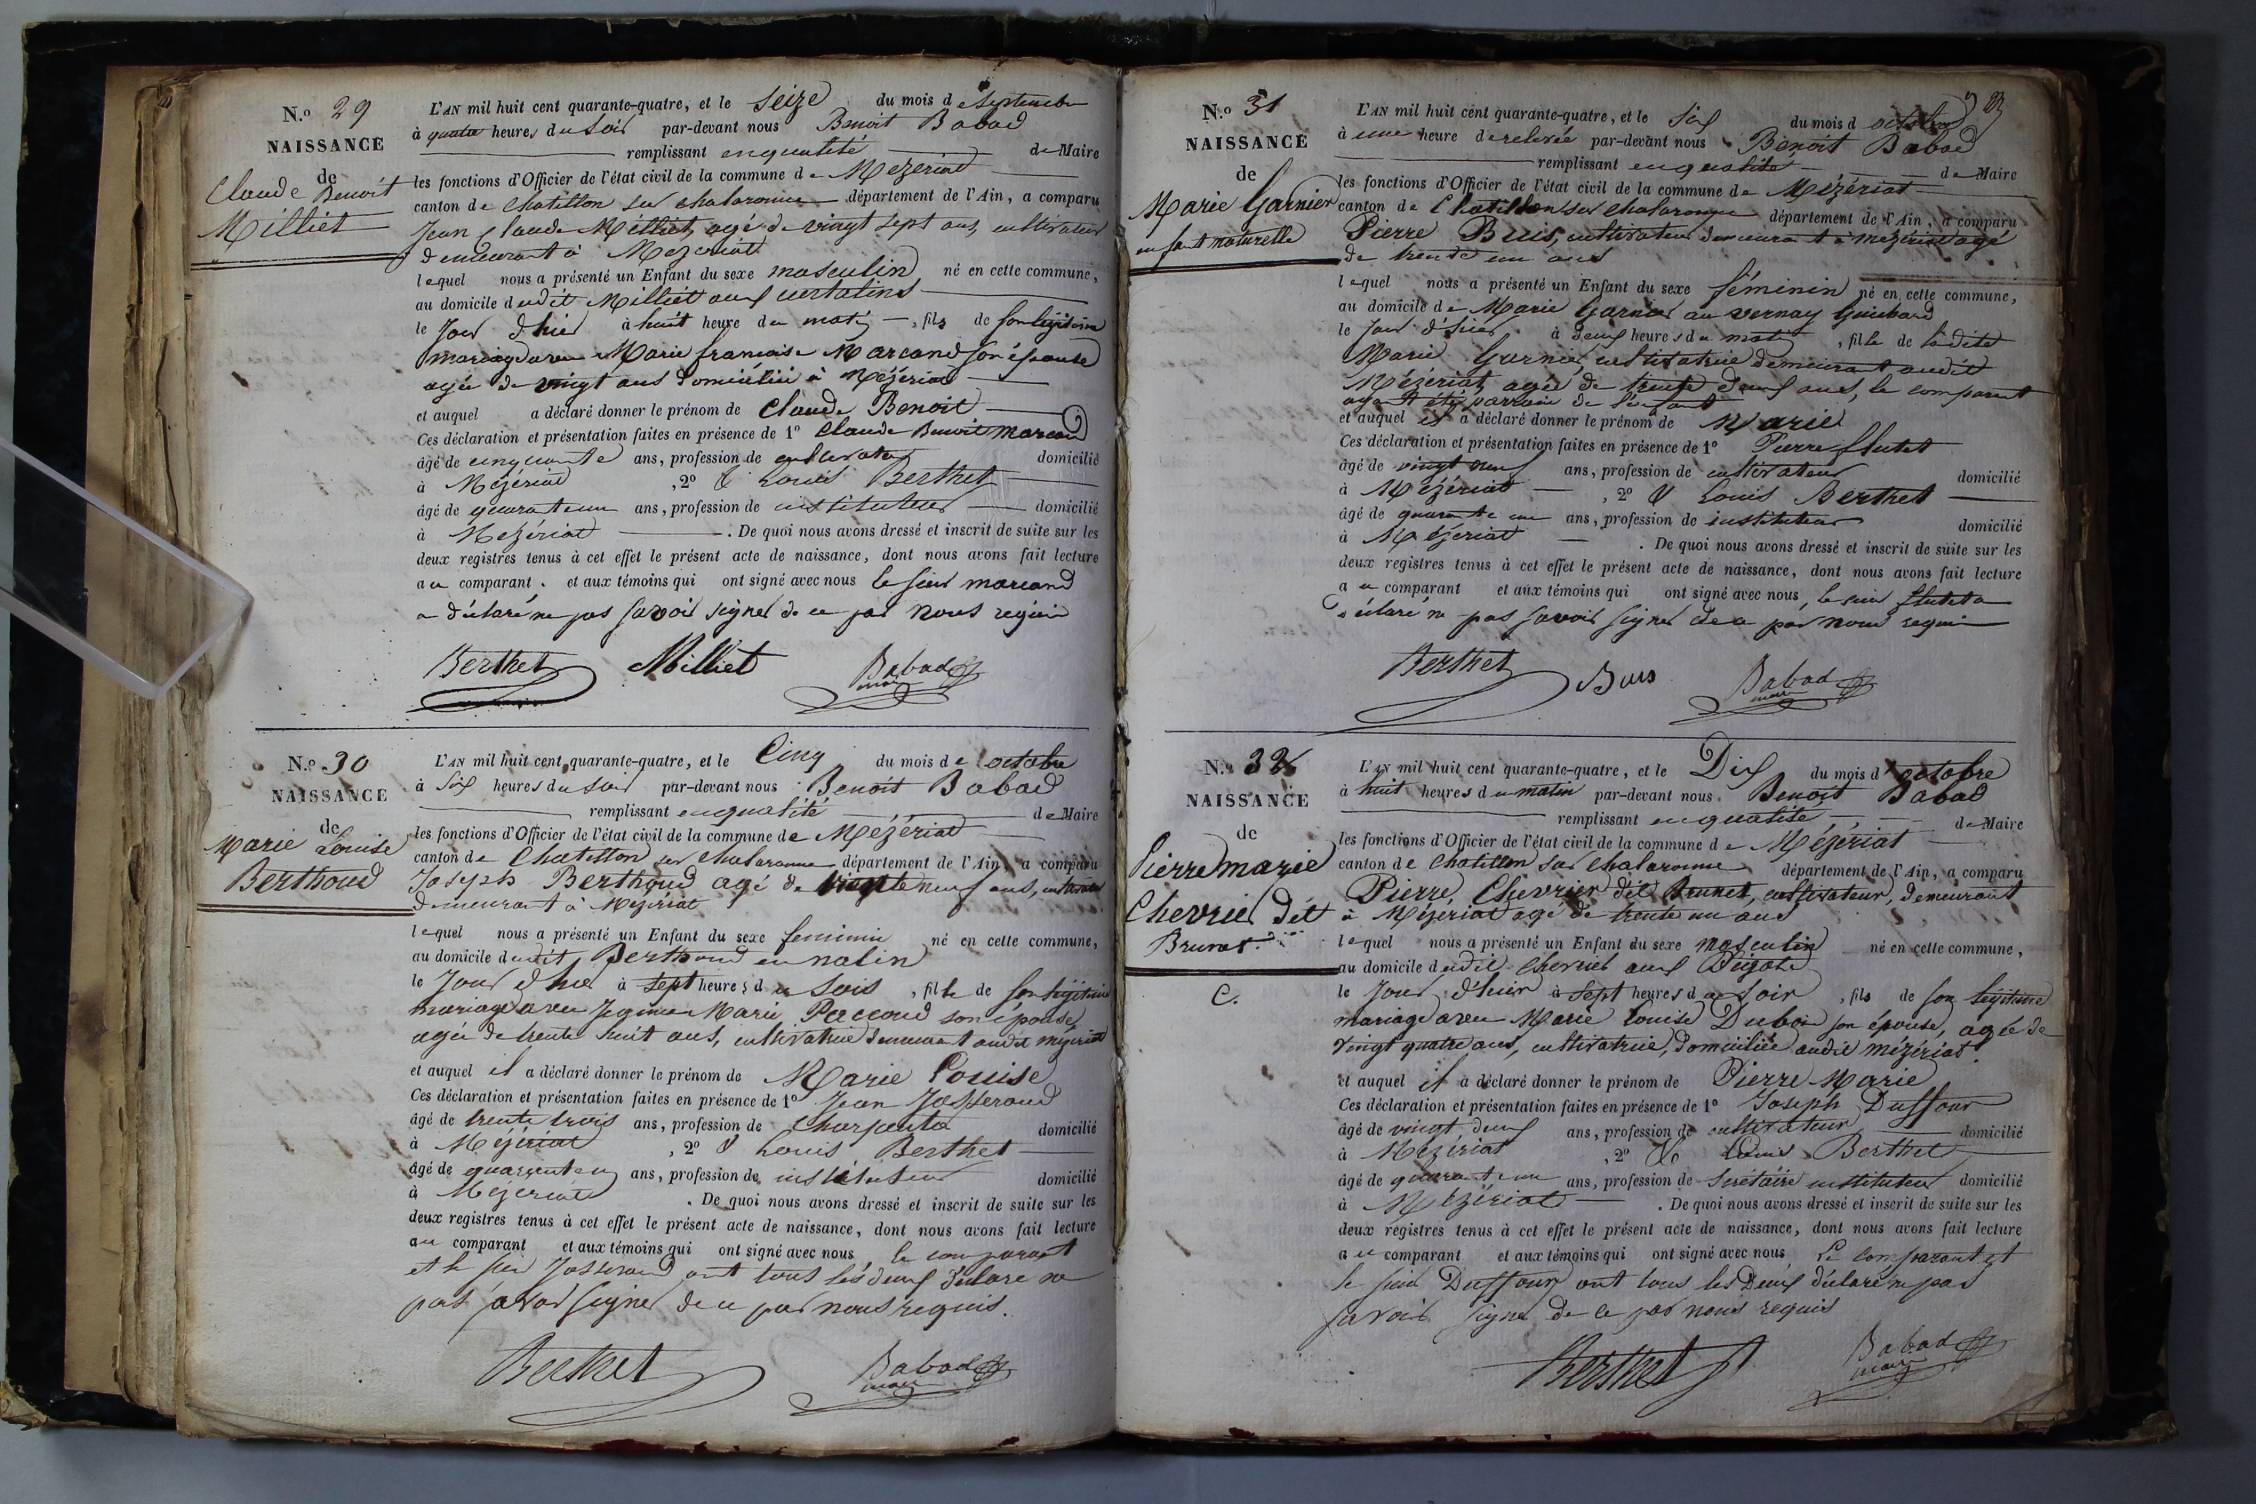 N.º 29
NAISSANCE
de
Claude Benoit
Milliet
L'AN mil huit cent quarante-quatre, et le seize du mois de septembre
à quatre heures du soir par-devant nous Benoit Babad
remplissant en qualité de Maire
les fonctions d'Officier de l'état civil de la commune de Mezeriat
canton de Chatillon sur chalaronne département de l'Ain, a comparu
Jean Claude Milliet, agé de vingt sept ans, cultivateur
demeurant à Mezeriat
lequel nous a présenté un Enfant du sexe masculin, né en cette commune,
au domicile dudit Milliet aux
le Jour d'hier à huit heure du matin, fils de son légitime
mariage avec Marie françoise Marcand son épouse
agée de vingt ans domiciliée à Mézériat
et auquel a déclaré donner le prénom de Claude Benoit
Ces déclaration et présentation faites en présence de 1º Claude Benoit Marcand
âgé de cinquante ans, profession de cultivateur domicilié
à Mézériat, 2º & Louis Berthet
âgé de quarante un ans, profession de instituteur domicilié
à Mezériat. De quoi nous avons dressé et inscrit de suite sur les
deux registres tenus à cet effet le présent acte de naissance, dont nous avons fait lecture
au comparant. et aux témoins qui ont signé avec nous le sieur marcand
a déclaré ne pas savoir signer de ce par nous requis
Berthet Milliet Babad
maire
N.º 30
NAISSANCE
de
Marie Louise
Berthoud
L'AN mil huit cent quarante-quatre, et le Cinq du mois de octobre
à Six heures du soir par-devant nous Benoit Babad
remplissant en qualité de Maire
les fonctions d'Officier de l'état civil de la commune de Mézériat
canton de Chatillon sur chalaronne département de l'Ain, a comparu
Joseph Berthoud agé de neuf ans, cultivateur
demeurant à Mezeriat
lequel nous a présenté un Enfant du sexe feminin né en cette commune,
au domicile dudit Berthoud en
le Jour d'hier à sept heures du Soir, fille de son légitime
mariage avec Marie Perroud son épouse,
agée de trente huit ans, cultivatrice demeurant audit mezeriat
et auquel il a déclaré donner le prénom de Marie Louise
Ces déclaration et présentation faites en présence de 1º Jean Josserand
âgé de trente trois ans, profession de charpentier domicilié
à Mézériat, 2º & Louis Berthet
âgé de quarante un ans, profession de instituteur domicilié
à Mézériat. De quoi nous avons dressé et inscrit de suite sur les
deux registres tenus à cet effet le présent acte de naissance, dont nous avons fait lecture
au comparant et aux témoins qui ont signé avec nous le comparant
et le sieur Josserand ont tous les deux déclaré ne
pas savoir signer de ce par nous requis.
Berthet Babad
maire
N.º 31
NAISSANCE
de
Marie Garnier
enfant naturelle
L'AN mil huit cent quarante-quatre, et le Six du mois d octobre
à une heure de relevée par-devant nous Benoit Babad
remplissant en qualité de Maire
les fonctions d'Officier de l'état civil de la commune de Mézériat
canton de Chatillon sur chalaronne département de l'Ain, a comparu
Pierre Buis, cultivateur demeurant à mézériat agé
de trente un ans
lequel nous a présenté un Enfant du sexe féminin né en cette commune,
au domicile de Marie Garnier au vernay Guichard
le Jour d'hier à deux heures du matin, fille de ladite
Marie Garnier, cultivatrice demeurant audit
Mézériat, agée de trente deux ans, le comparant
ayant été parrain de l'enfant
et auquel il a déclaré donner le prénom de Marie
Ces déclaration et présentation faites en présence de 1º Pierre flutet
âgé de vingt ans, profession de cultivateur domicilié
à Mézériat, 2º & Louis Berthet
âgé de quarante un ans, profession de instituteur domicilié
à Mézeriat. De quoi nous avons dressé et inscrit de suite sur les
deux registres tenus à cet effet le présent acte de naissance, dont nous avons fait lecture
au comparant et aux témoins qui ont signé avec nous, le sieur flutet a
déclaré ne pas savoir signer de ce par nous requis
Berthet Buis Babad
maire
N.º 32
NAISSANCE
de
Pierre marie
Chevrier dit
Brunet
C.
L'AN mil huit cent quarante-quatre, et le Dix du mois d'octobre
à huit heures du matin par-devant nous Benoit Babad
remplissant en qualité de Maire
les fonctions d'Officier de l'état civil de la commune de Mézériat
canton de Chatillon sur chalaronne département de l'Ain, a comparu
Pierre Chevrier dit Brunet, cultivateur, demeurant
à Mézériat agé de trente un ans
lequel nous a présenté un Enfant du sexe masculin né en cette commune,
au domicile dudit Chevrier aux
le Jour d'hier à sept heures du soir, fils de son légitime
mariage avec Marie Louise Dubois son épouse, agée de
vingt quatre ans, cultivatrice, domiciliée audit mézériat.
et auquel il a déclaré donner le prénom de Pierre Marie
Ces déclaration et présentation faites en présence de 1º Joseph Duffour
âgé de vingt deux ans, profession de cultivateur domicilié
à Mézériat, 2º & Louis Berthet
âgé de quarante un ans, profession de Secrétaire instituteur domicilié
à Mézériat. De quoi nous avons dressé et inscrit de suite sur les
deux registres tenus à cet effet le présent acte de naissance, dont nous avons fait lecture
au comparant et aux témoins qui ont signé avec nous Le comparant et
le sieur Duffour ont tous les Deux déclaré ne pas
savoir signer de ce par nous requis
Berthet Babad
maire